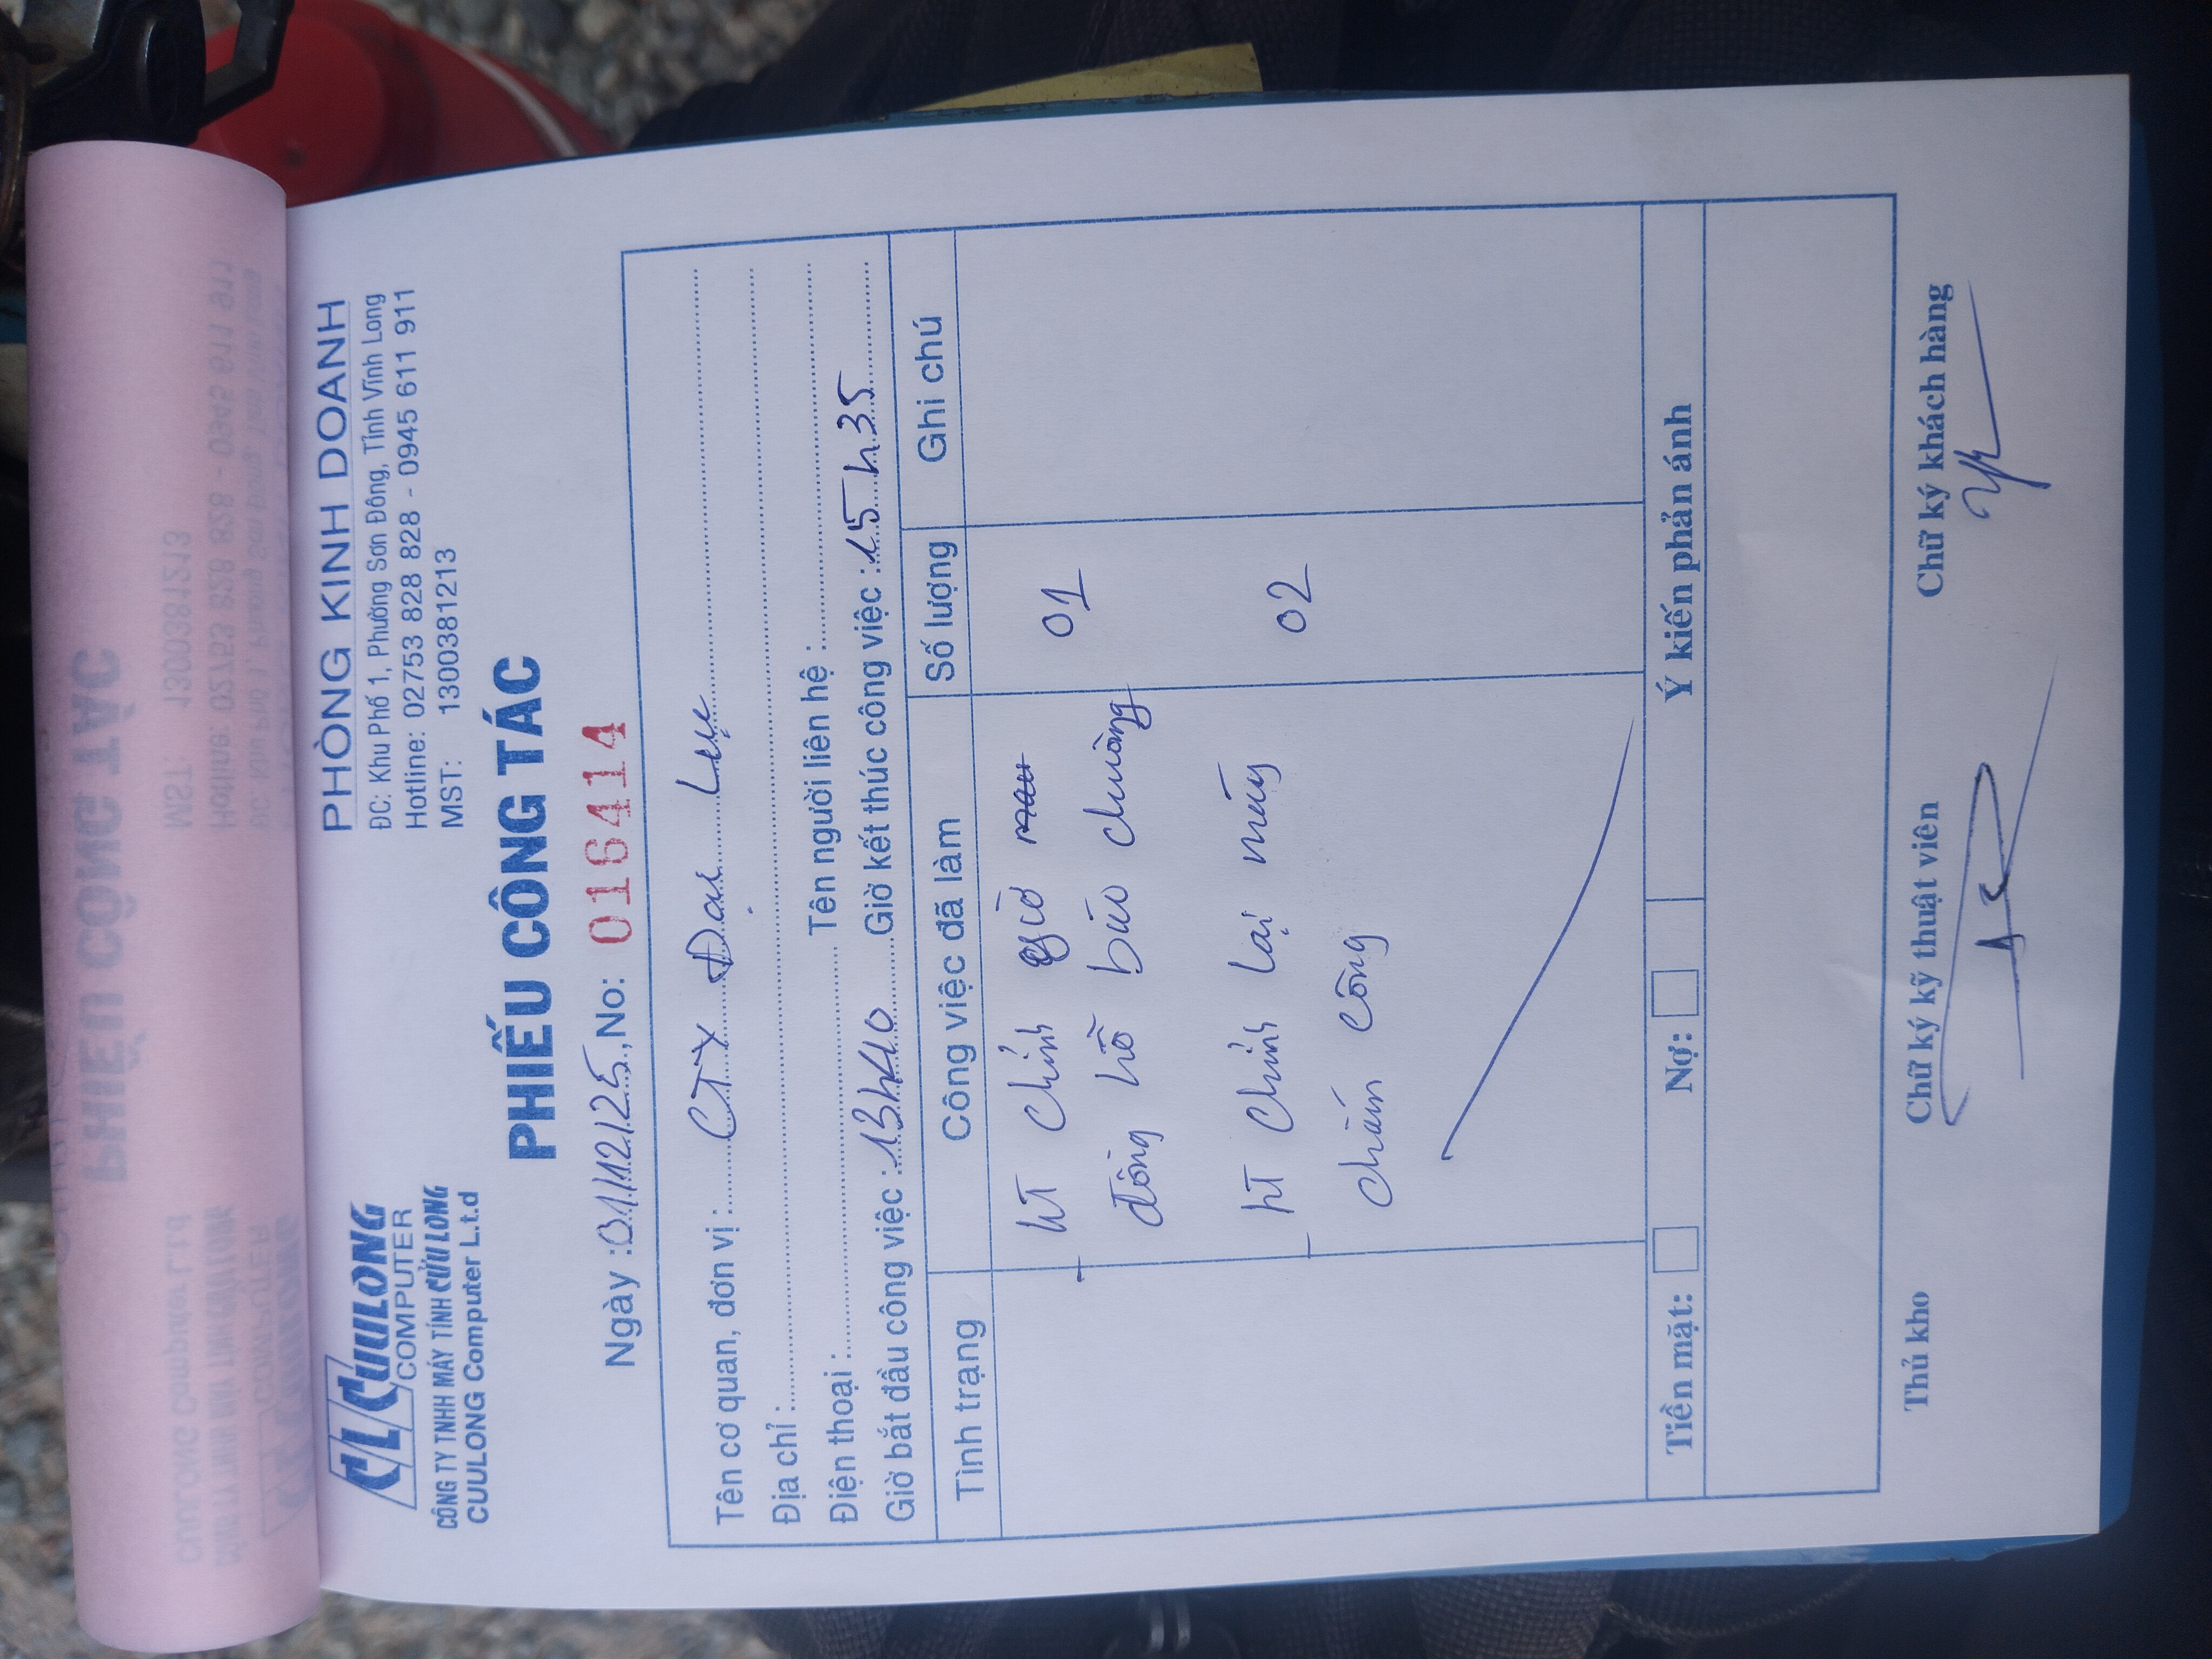 CL CUULONG
COMPUTER
CÔNG TY TNHH MÁY TÍNH CỬU LONG
CUULONG Computer L.t.d
PHÒNG KINH DOANH
ĐC: Khu Phố 1, Phường Sơn Đông, Tỉnh Vĩnh Long
Hotline: 02753 828 828 - 0945 611 911
MST: 1300381213
PHIẾU CÔNG TÁC
Ngày : 01/12/25, No: 016414
Tên cơ quan, đơn vị : CTY Đại Lục
Địa chỉ :
Điện thoại : Tên người liên hệ :
Giờ bắt đầu công việc : 13h40 Giờ kết thúc công việc : 15h35
Tình trạng Công việc đã làm Số lượng Ghi chú
- hT Chỉnh giờ 01
đồng hồ báo chuông
- hT Chỉnh lại máy 02
chấm công
Tiền mặt: Nợ: Ý kiến phản ánh
Thủ kho Chữ ký kỹ thuật viên Chữ ký khách hàng